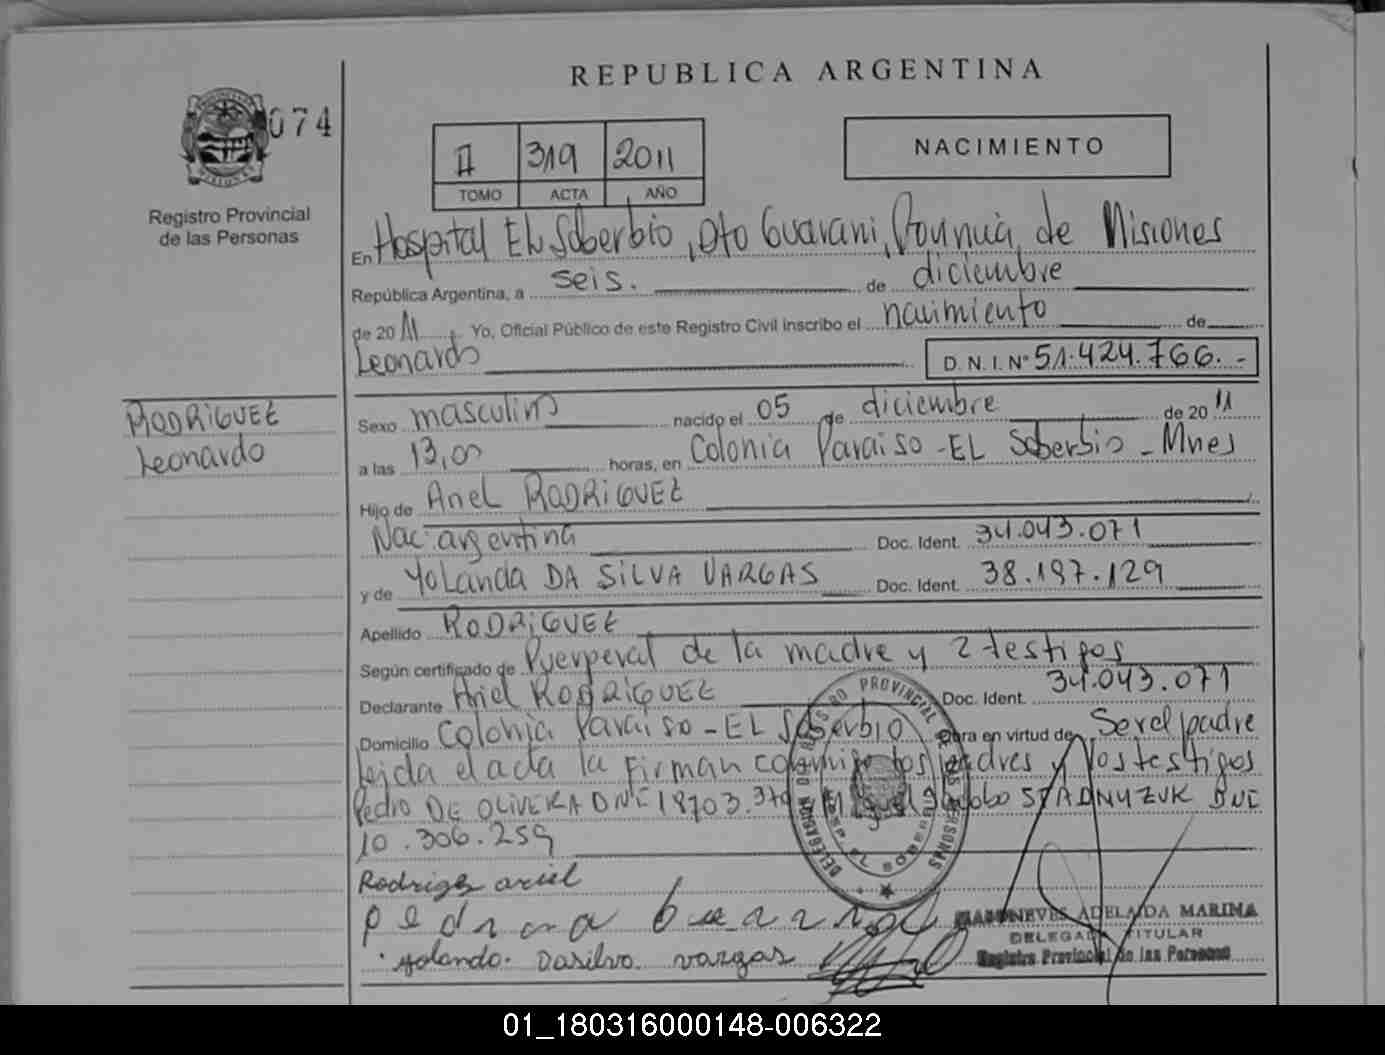 REPUBLICA ARGENTINA
074
II 319 2011
TOMO ACTA AÑO
NACIMIENTO
Registro Provincial
de las Personas
En Hospital EL Soberbio, Dto Guarani, Provincia de Misiones
República Argentina, a seis. de diciembre
de 2011, Yo, Oficial Público de este Registro Civil inscribo el nacimiento de
Leonardo D.N.I. Nº 51.424.766.-
RODRIGUEZ
Leonardo
Sexo masculino nacido el 05 de diciembre de 2011
a las 13,00 horas, en Colonia Paraiso - EL Soberbio - Mnes
Hijo de Ariel RODRIGUEZ
Nac. argentina Doc. Ident. 34.043.071
y de Yolanda DA SILVA VARGAS Doc. Ident. 38.197.129
Apellido RODRIGUEZ
Según certificado de Puerperal de la madre y 2 testigos
Declarante Ariel RODRIGUEZ Doc. Ident. 34.043.071
Domicilio Colonia Paraiso - EL Soberbio Obra en virtud de Ser el padre
Leida el acta la firman conmigo los padres y los testigos
Pedro DE OLIVERA DNI 18703.379 STADNYZUK DNI
10.306.259
Rodrigez ariel
Yolando. Dasilva vargas
ADELAIDA MARINA
DELEGADA TITULAR
Registro Provincial de las Personas
REGISTRO PROVINCIAL DE LAS PERSONAS
DELEGACION
01_180316000148-006322